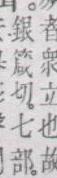 者衆立也故
銀箴切。七部